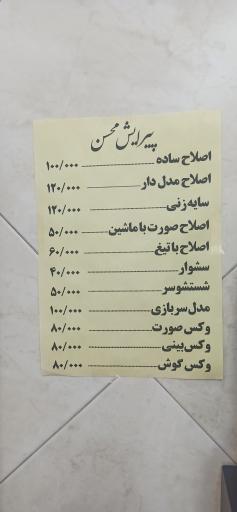 پیرایش محسن
اصلاح ساده ۱۰۰/۰۰۰
اصلاح مدل دار ۱۲۰/۰۰۰
سایه زنی ۱۲۰/۰۰۰
اصلاح صورت با ماشین ۵۰/۰۰۰
اصلاح با تیغ ۶۰/۰۰۰
سشوار ۴۰/۰۰۰
شستشو سر ۵۰/۰۰۰
مدل سربازی ۱۰۰/۰۰۰
وکس صورت ۸۰/۰۰۰
وکس بینی ۸۰/۰۰۰
وکس گوش ۸۰/۰۰۰